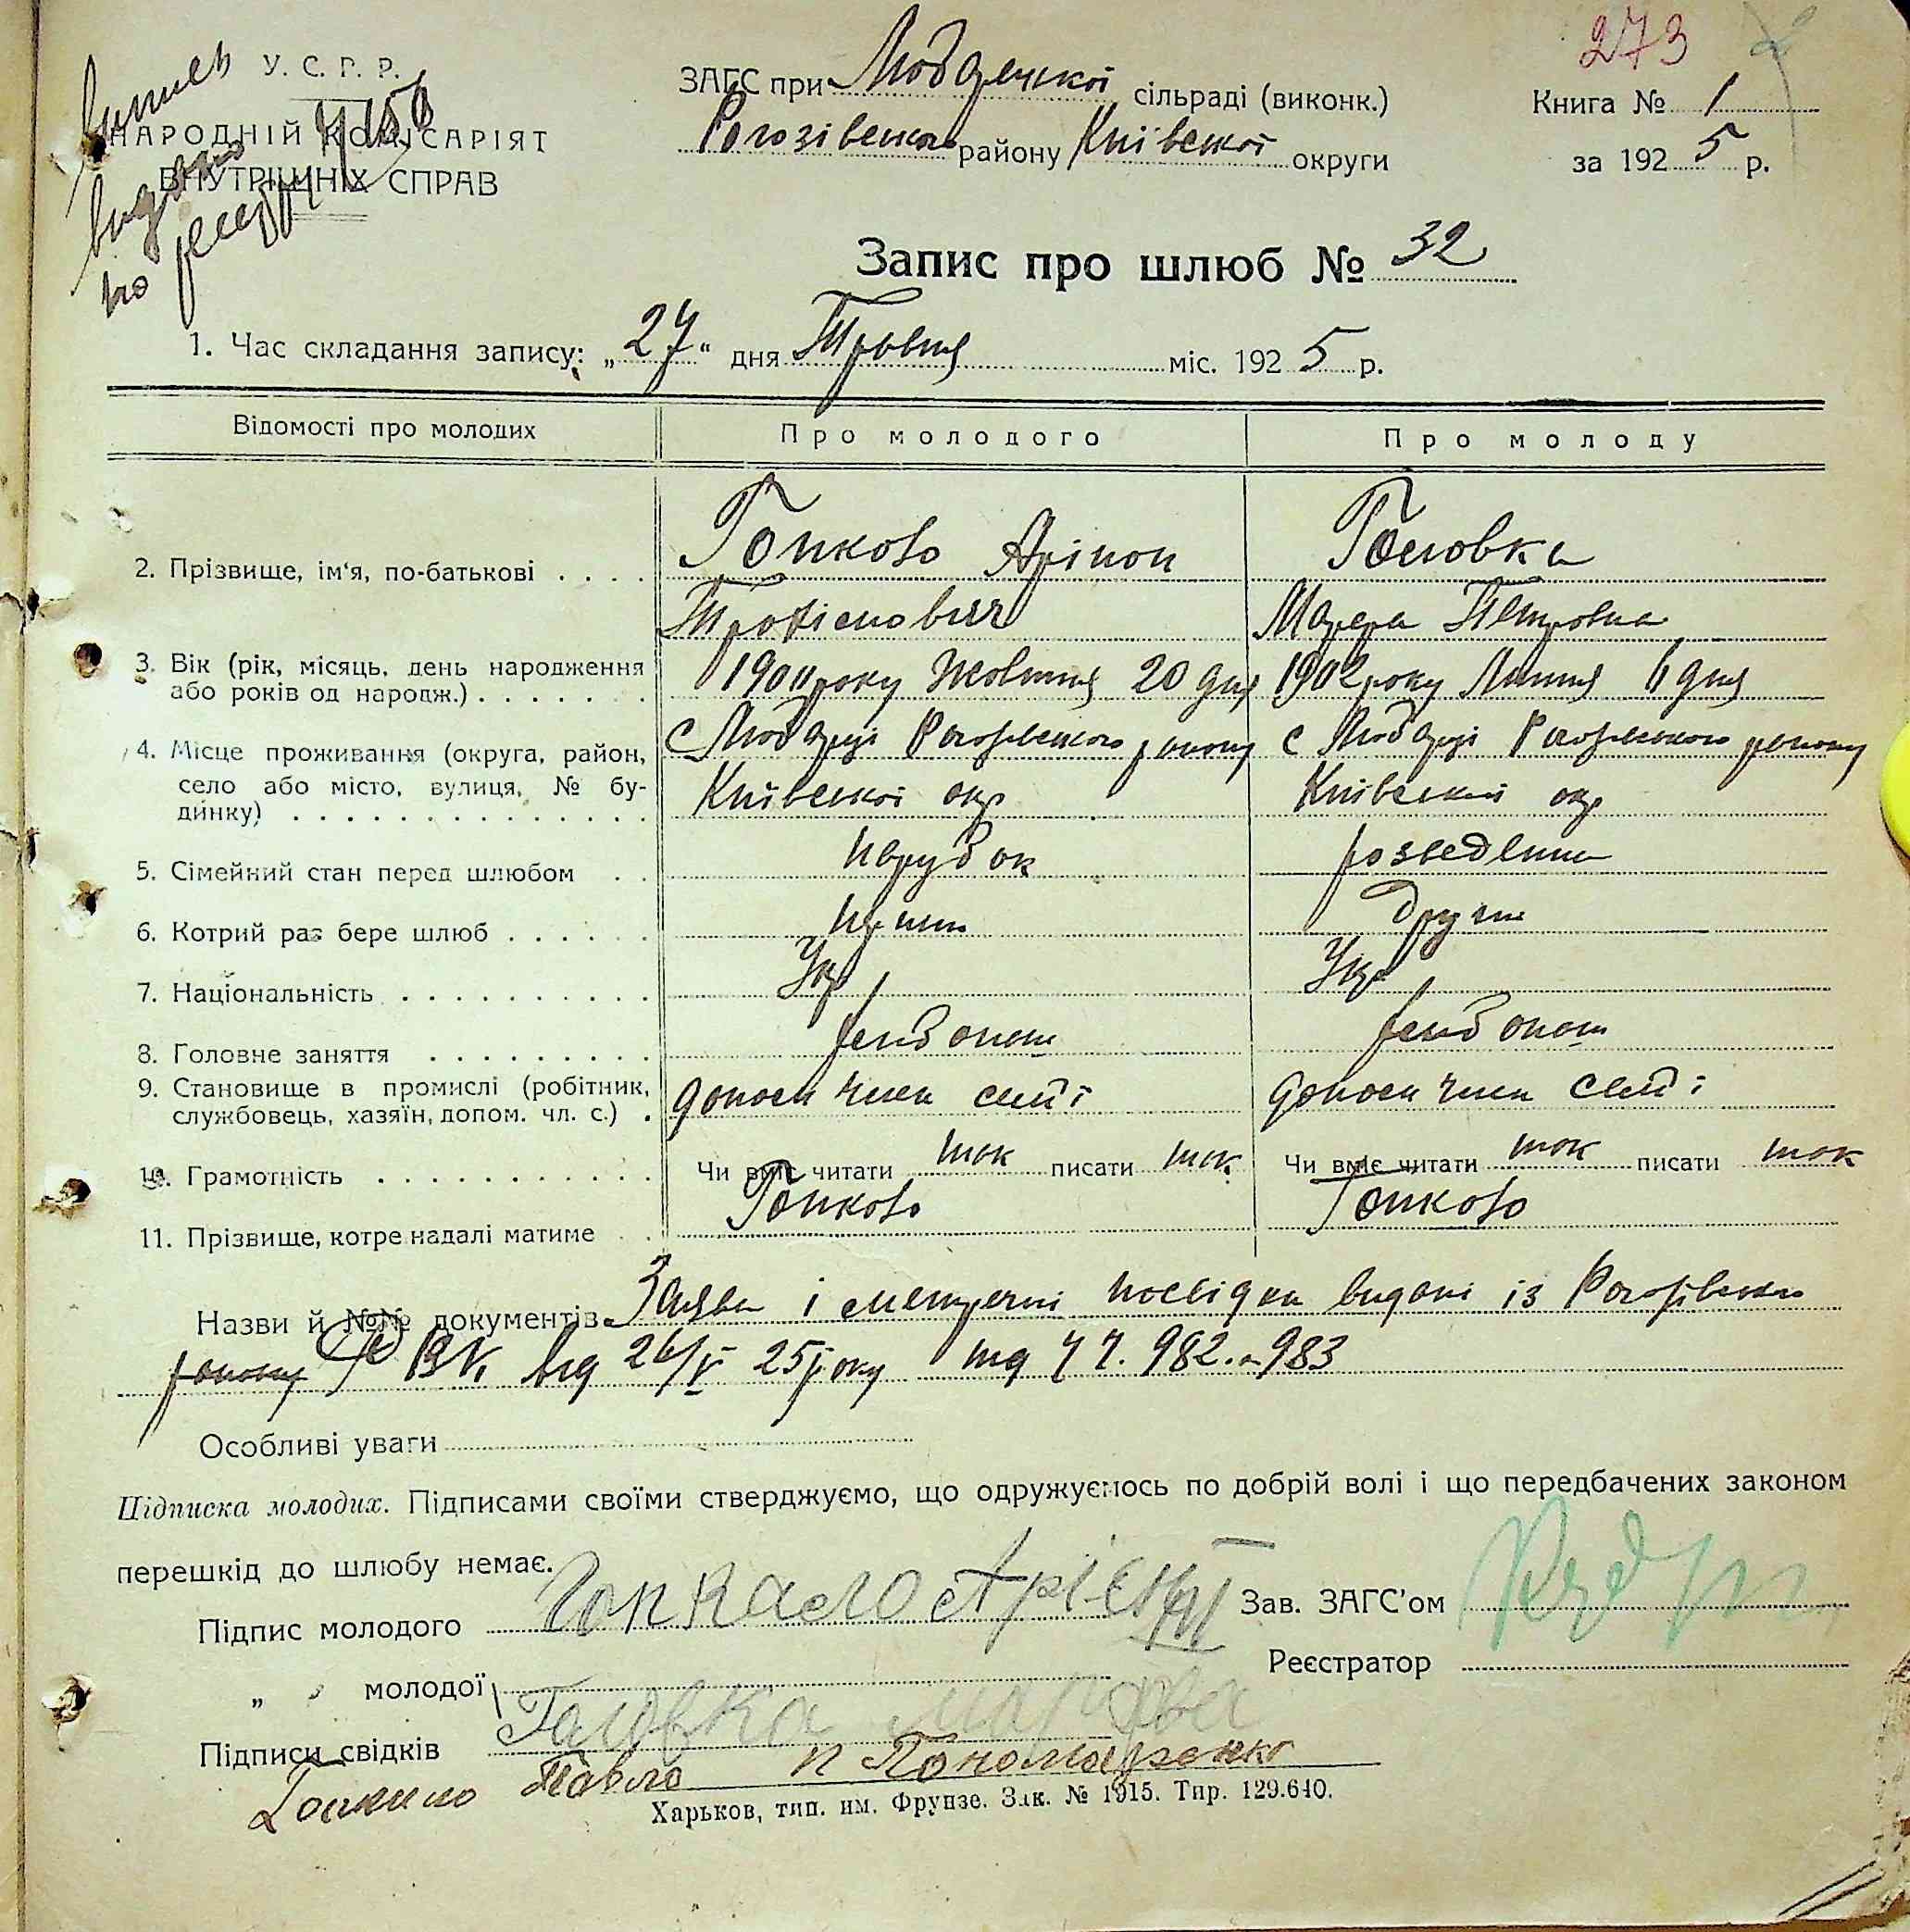 273
У. С. Р. Р.
НАРОДНІЙ КОМІСАРІЯТ
ВНУТРІШНІХ СПРАВ
ЗАГС при Любарецкої сільраді (виконк.)
Рогозівського району Київської округи
Книга № 1
за 1925 р.
Запис про шлюб № 32
1. Час складання запису: „27“ дня Травня міс. 1925 р.
Відомості про молодих
Про молодого
Про молоду
2. Прізвище, ім‘я, по-батькові . . . .
Гопкало
Головка
3. Вік (рік, місяць, день народження або років од народж.) . . . . . . .
року Жовтня 20 дня
1902 року Липня 6 дня
4. Місце проживання (округа, район, село або місто, вулиця, № будинку) . . . . . . . . . . . . . . .
с Рогозівського району
Київської окр
с Рогозівського району
Київської окр
5. Сімейний стан перед шлюбом . .
парубок
розведенна
6. Котрий раз бере шлюб . . . . . .
7. Національність . . . . . . . . . . .
Укр
Укр
8. Головне заняття . . . . . . . . .
хлібопаш
хлібопаш
9. Становище в промислі (робітник, службовець, хазяїн, допом. чл. с.) .
член семї
член семї
10. Грамотність . . . . . . . . . . .
Чи вміє читати так писати так
Чи вміє читати так писати так
11. Прізвище, котре надалі матиме . .
Гопкало
Гопкало
Назви й №№ документів Заява і метричні посвідки видані із Рогозівського
району ВК від 26/V 25 року під 982 983
Особливі уваги
Підписка молодих. Підписами своїми стверджуємо, що одружуємось по добрій волі і що передбачених законом
перешкід до шлюбу немає.
Підпис молодого Гопкало
Зав. ЗАГС'ом
„ молодої Головка
Реєстратор
Підписи свідків
Павло П Пономаренко
Харьков, тип. им. Фрунзе. Зак. № 1915. Тир. 129.640.